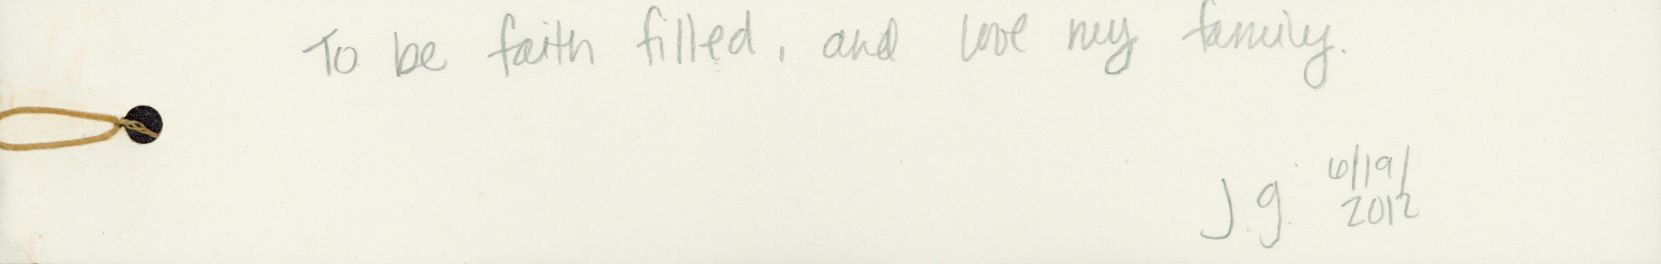 To be faith filled, and love my family.
J.g. 6/19/
2012